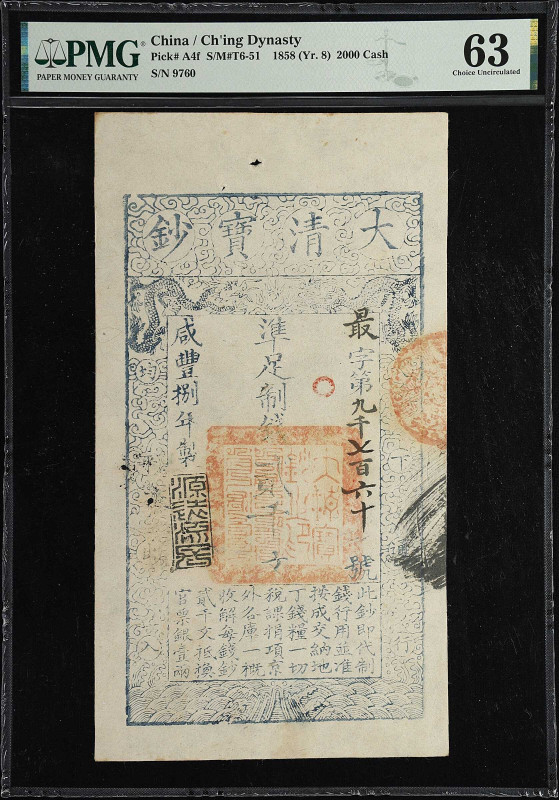 PMG
PAPER MONEY GUARANTY
China / Ch'ing Dynasty
Pick# A4f S/M#T6-51 1858 (Yr. 8) 2000 Cash
S/N 9760
63
Choice Uncirculated
大清寶鈔
最字第九千七百六十號
準足制錢貳千文
咸豐捌年製
源遠流長
此鈔即代制
錢行用並准
按成交納地
丁錢糧一切
稅課捐項京
外各庫一概
收解每錢鈔
貳千文抵換
官票銀壹兩
下
行
均